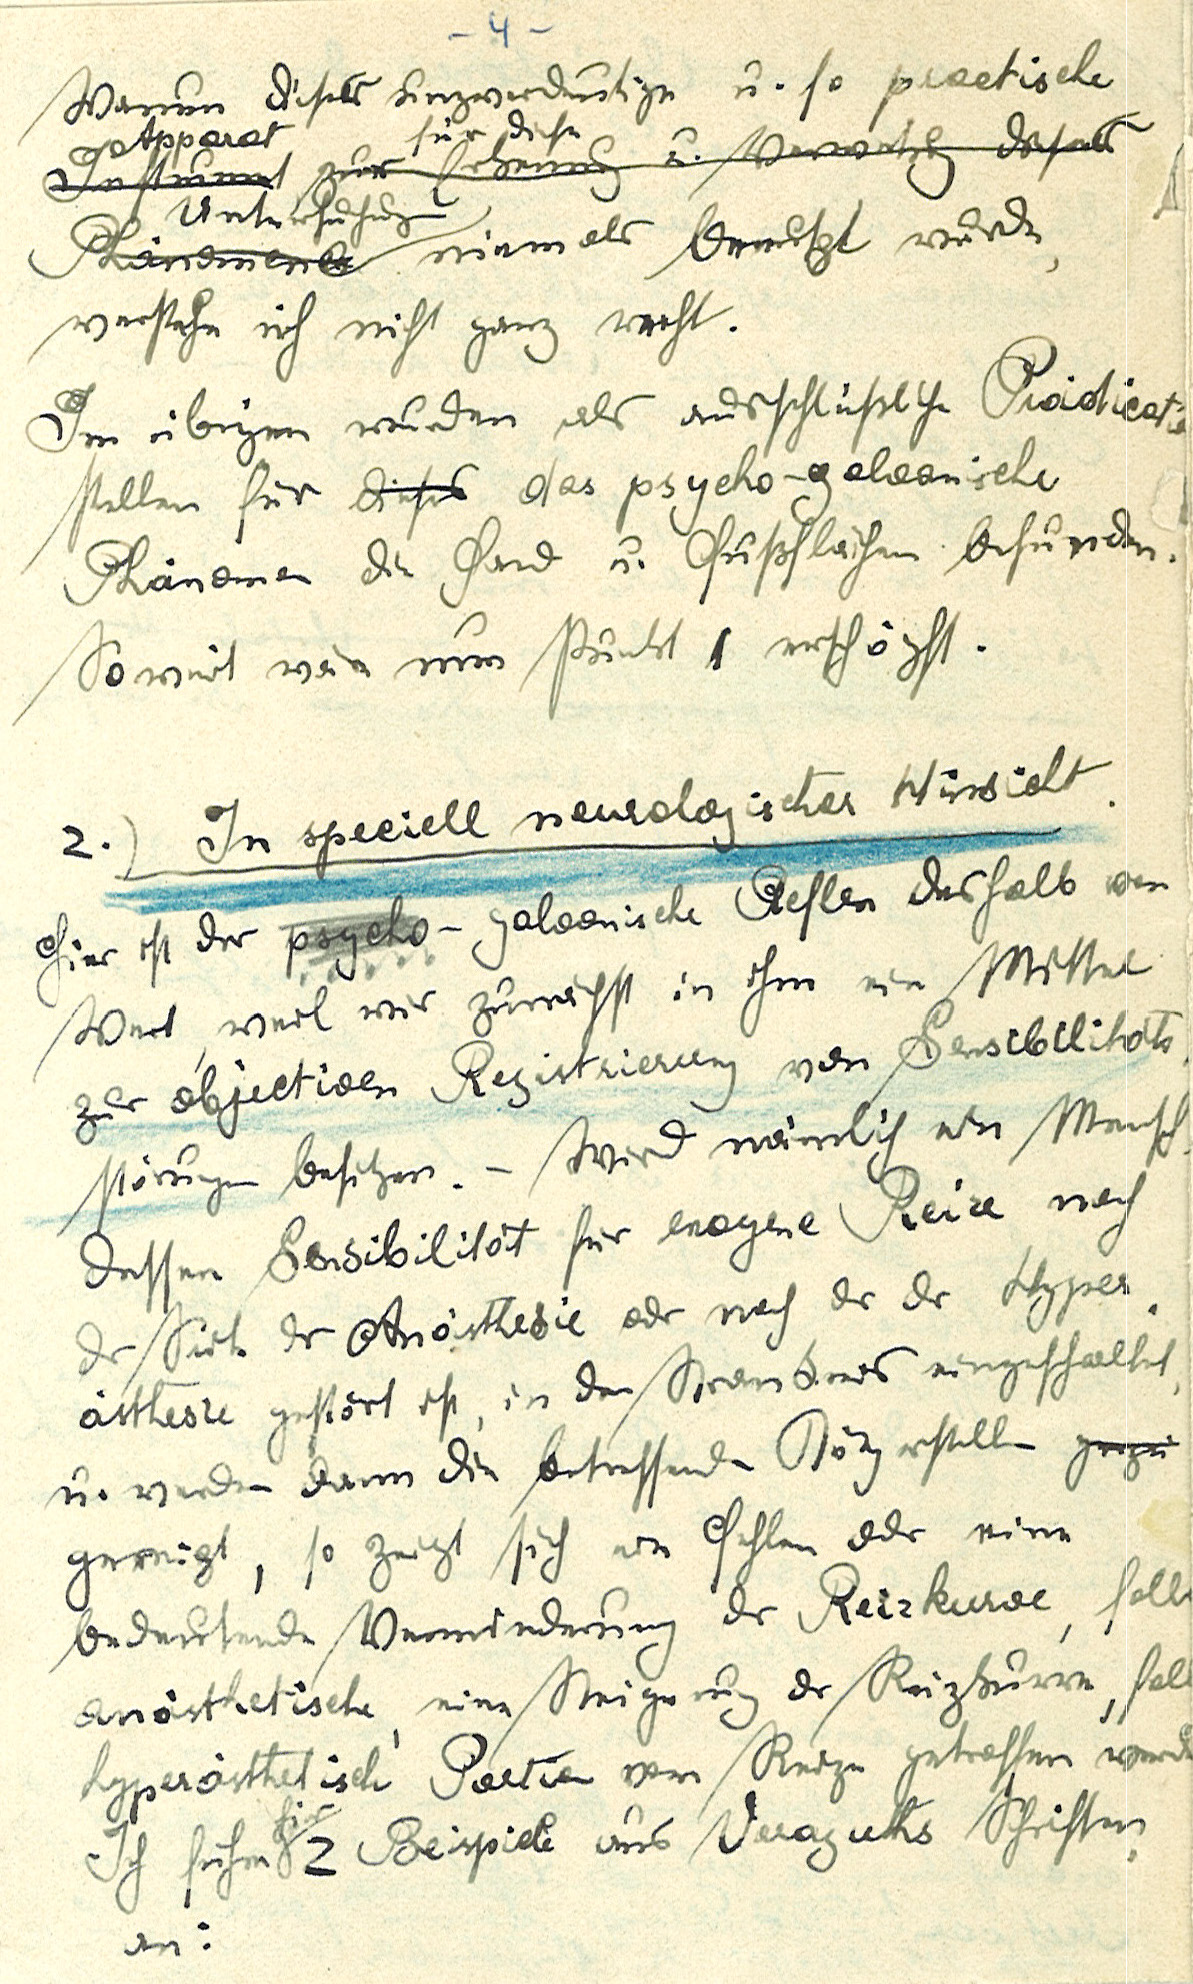 - 4 -
Warum dieser unzweideutige u. so practische
Apparat für diese
Instrument zur Erkennung u. Verwertg dieses
Untersuchung
Phänomens niemals benutzt wurde,
verstehe ich nicht ganz recht.
Im übrigen wurden als ausschließliche
stellen für dieses das psycho-galvanische
Phänomen die Hand u. Fußflächen befunden.
Soweit wäre nun Punkt 1 erschöpft.
2.) In speciell neurologischer Hinsicht.
Hier ist der psycho-galvanische Reflex deshalb von
Wert, weil wir zunächst in ihm ein Mittel
zur objectiven Registrierung von Sensibilitäts-
störungen besitzen. - Wird nämlich ein Mensch,
dessen Sensibilität für exogene Reize nach
der Seite der Anästhesie oder nach der der Hyper-
ästhesie gestört ist, in den Stromkreis eingeschaltet,
u. werden dann die betreffenden
gereizt, so zeigt sich ein Fehlen oder eine
bedeutende Verminderung der Reizkurve, falls
anästhetische, eine Steigerung der Reizkurve, falls
hyperästhetische Partien vom Reize getroffen werden
hier
Ich führe 2 Beispiele aus Veraguths Schriften
an: